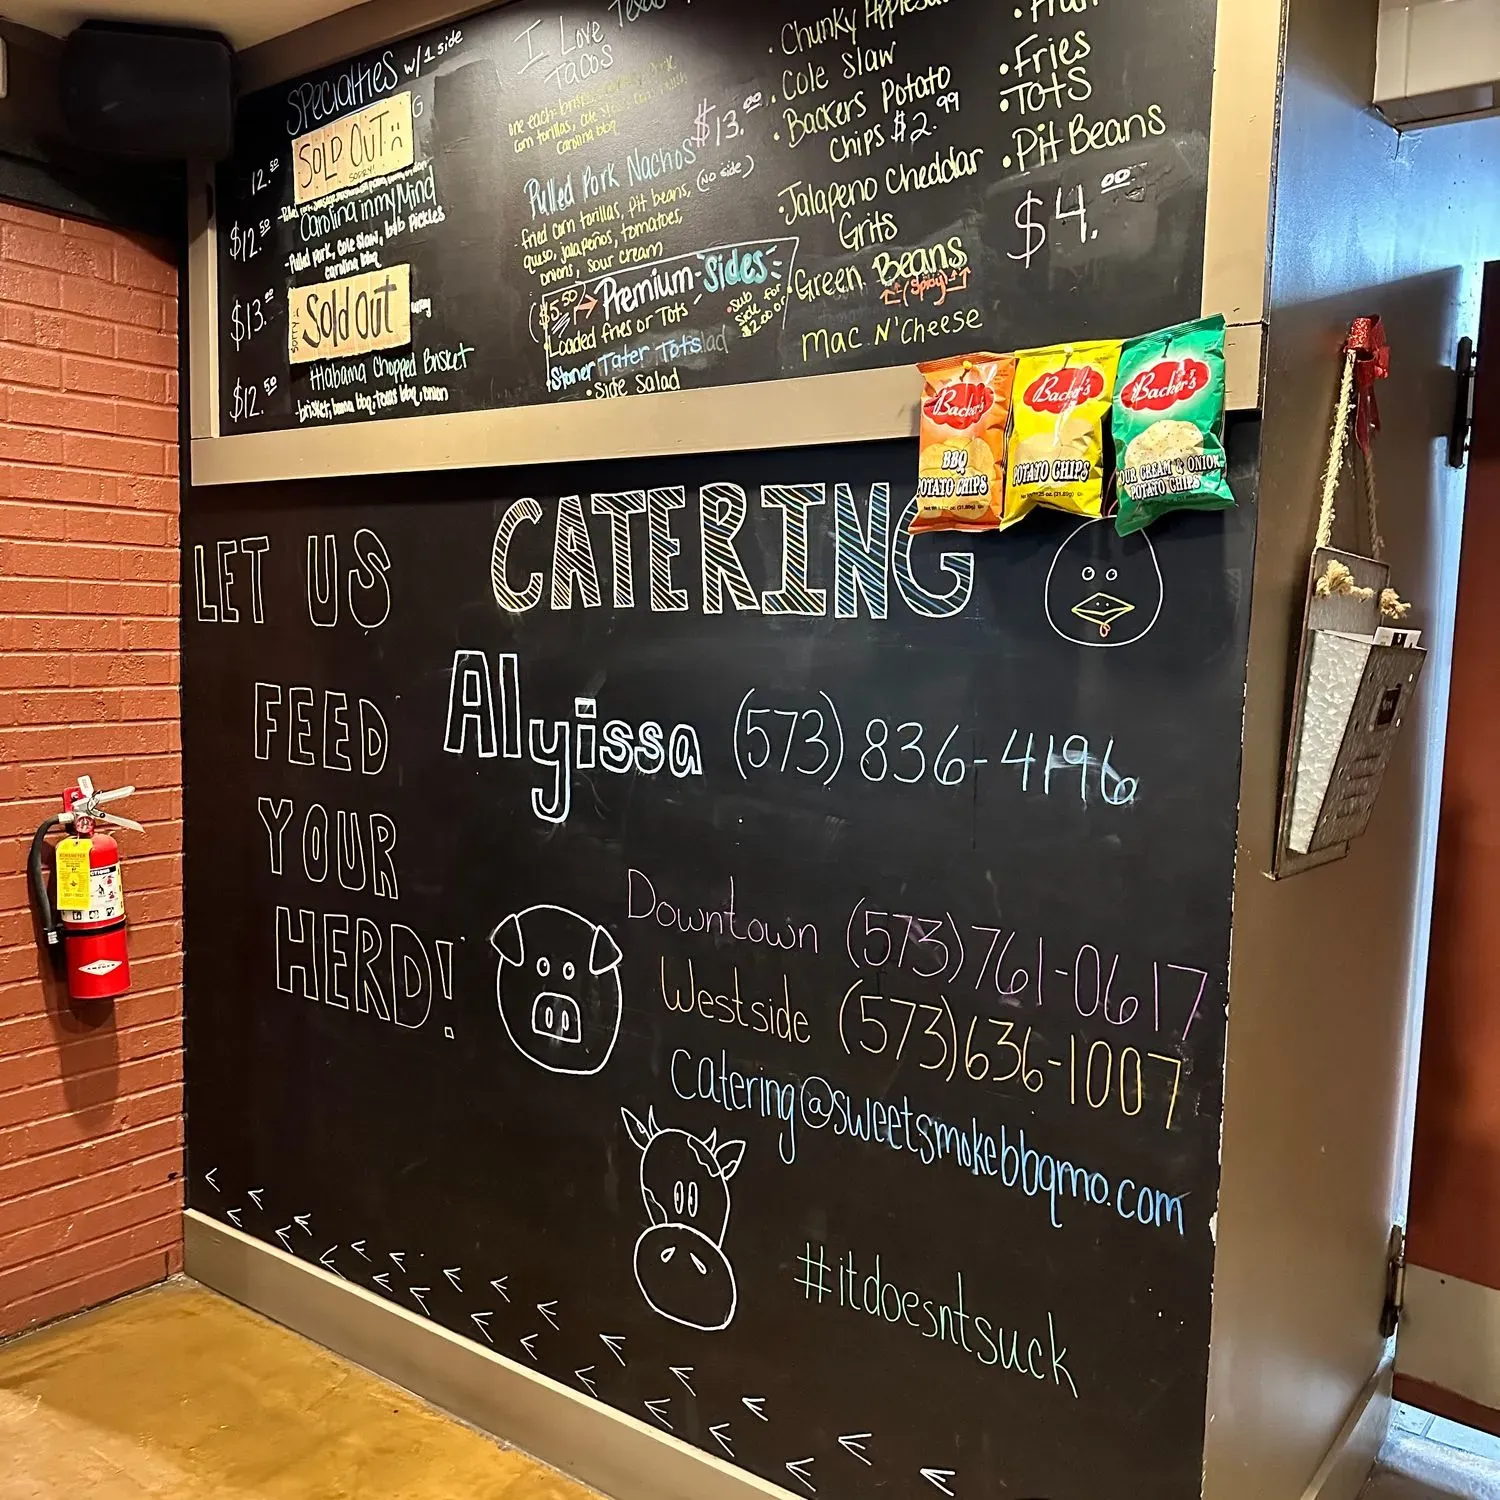 SPECIALTIES w/1 side
12.50
SOLD OUT :(
SORRY!
$12.50
Carolina in my Mind
- Pulled pork, cole slaw, bvb pickles
carolina bbq
$13.00
Sold Out
SORRY :(
$12.50
Alabama Chopped Brisket
- brisket, bama bbq, texas bbq, onion
I Love Texas
TACOS
corn tortillas, cole slaw
Carolina bbq
$13.00
Pulled Pork Nachos
(No side)
- fried corn torillas, pit beans,
queso, jalapeños, tomatoes,
onions, sour cream
($5.50) Premium Sides
Loaded fries or Tots
• Stoner Tater Tots
• Side Salad
• Sub
Side for
$2.00 or
• Chunky
• Cole Slaw
• Backers Potato
Chips $2.99
• Jalapeno Cheddar
Grits
• Green Beans
(Spicy)
Mac N' Cheese
• Fries
• TOTS
• Pit Beans
$4.00
Backer's
BBQ
POTATO CHIPS
Backer's
POTATO CHIPS
Backer's
SOUR CREAM & ONION
POTATO CHIPS
LET US
FEED
YOUR
HERD!
CATERING
Alyissa (573) 836-4196
Downtown (573) 761-0617
Westside (573) 636-1007
catering@sweetsmokebbqmo.com
#itdoesntsuck